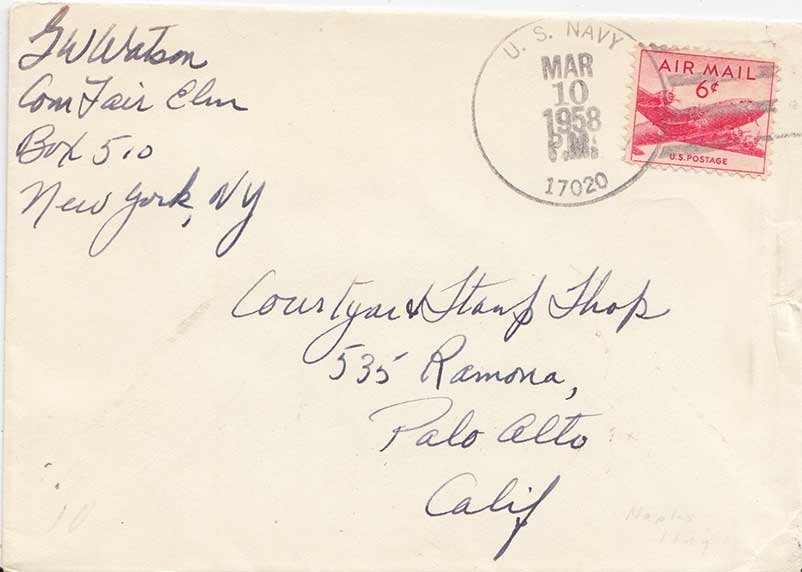 GW Watson
Com Fair Elm
Box 510
New York, NY
U. S. NAVY
MAR
10
1958
P.M.
17020
AIR MAIL
6¢
U.S. POSTAGE
Courtyard Stamp Shop
535 Ramona,
Palo Alto
Calif
Naples
Italy